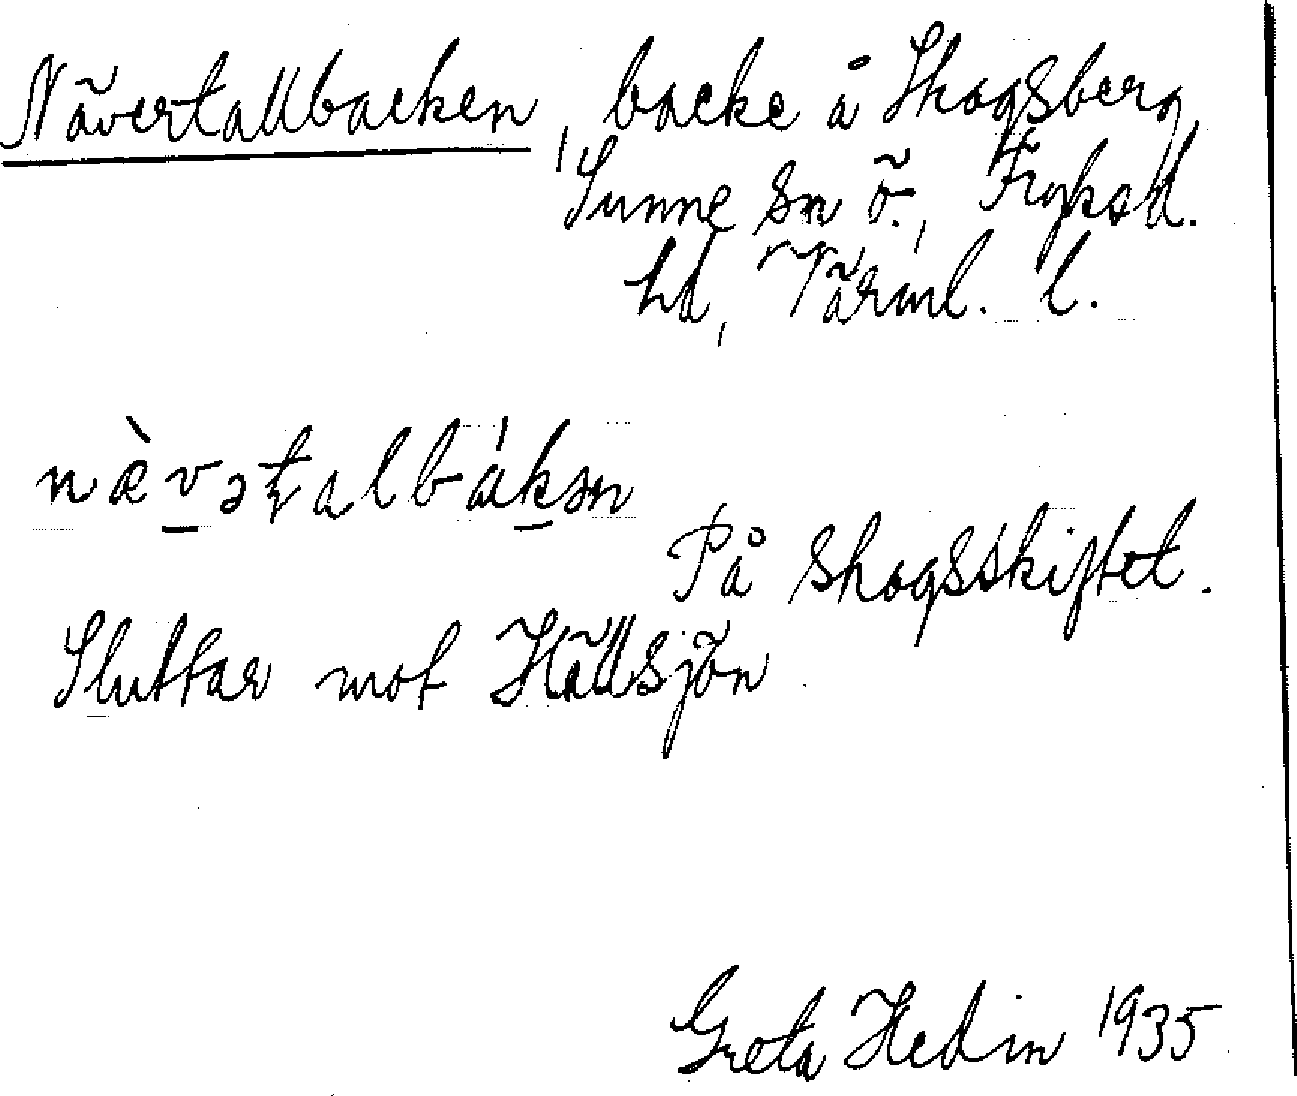 Nävertallbacken, backe å Skogsberg,
Sunne sn ö., Fryksd.
hd, Värml. l.
næ̀vəʈalbákən
På skogsskiftet.
Sluttar mot Hällsjön
Greta Hedin 1935